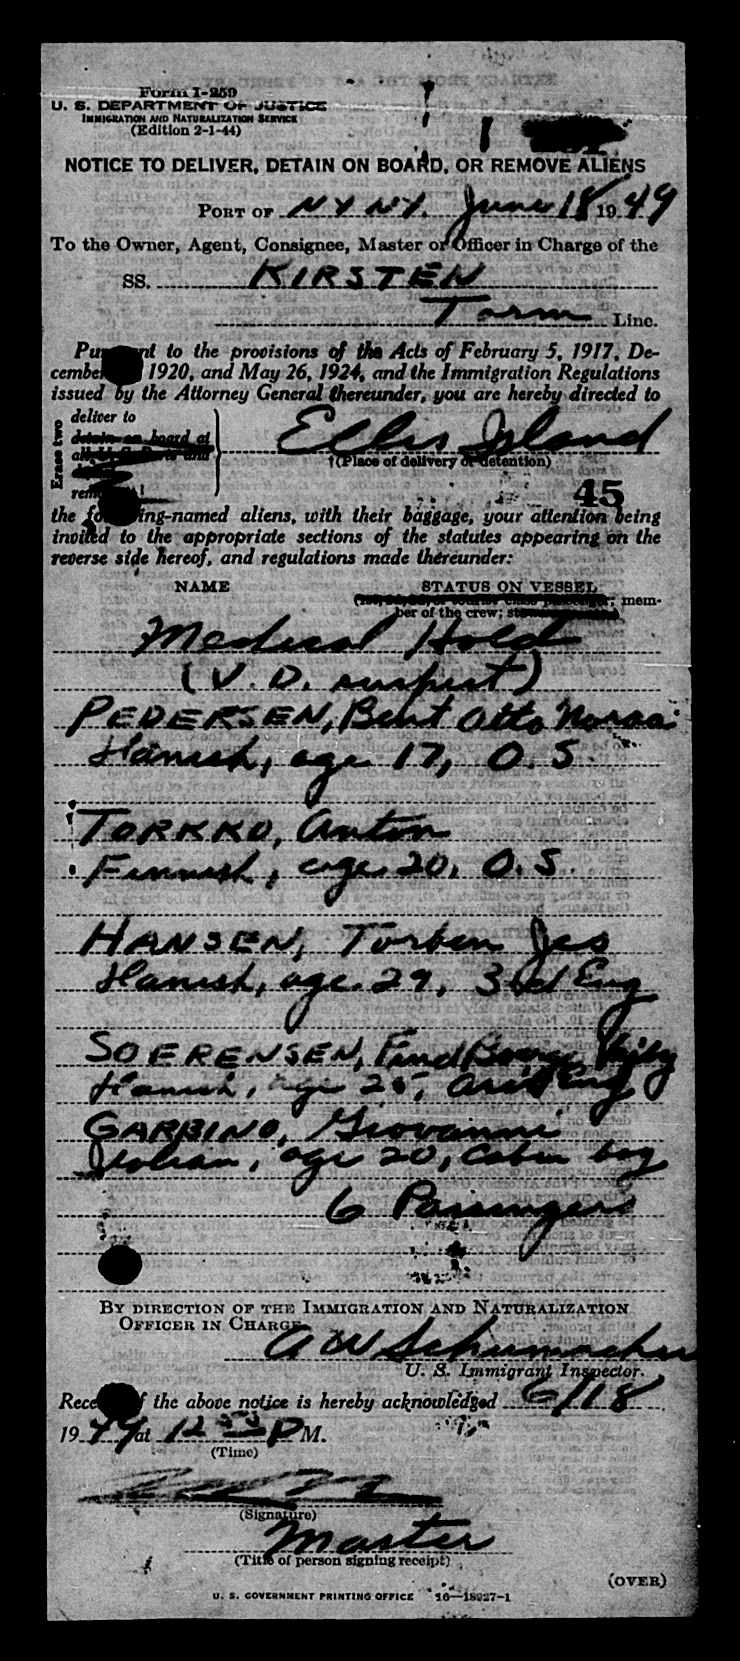 Form I-259
U. S. DEPARTMENT OF JUSTICE
IMMIGRATION AND NATURALIZATION SERVICE
(Edition 2-1-44)
NOTICE TO DELIVER, DETAIN ON BOARD, OR REMOVE ALIENS
PORT OF NY NY. June 18 1949
To the Owner, Agent, Consignee, Master or Officer in Charge of the
SS. KIRSTEN
Torm Line.
to the provisions of the Acts of February 5, 1917, De-
1920, and May 26, 1924, and the Immigration Regulations
issued by the Attorney General thereunder, you are hereby directed to
Erase two
deliver to
detain on board at
Ellis Island
†(Place of delivery or detention)
45
the following-named aliens, with their baggage, your attention being
invited to the appropriate sections of the statutes appearing on the
reverse side hereof, and regulations made thereunder:
NAME STATUS ON VESSEL
mem-
ber of the crew;
Medical Hold
(V. D. suspect)
PEDERSEN, Bent Otto
Danish, age 17, O. S.
TORKKO, Anton
Finnish, age 20, O. S.
HANSEN, Torben Jes
Danish, age 29, 3rd Eng
SOERENSEN,
Danish, age Eng
GARBINO, Giovanni
Italian, age 20, Cabin boy
6 Passengers
BY DIRECTION OF THE IMMIGRATION AND NATURALIZATION
OFFICER IN CHARGE
A W Schumacher
U. S. Immigrant Inspector.
the above notice is hereby acknowledged 6/18
1949 at 12 P M.
(Time)
(Signature)
Master
(Title of person signing receipt)
(OVER)
U. S. GOVERNMENT PRINTING OFFICE 16—18927-1